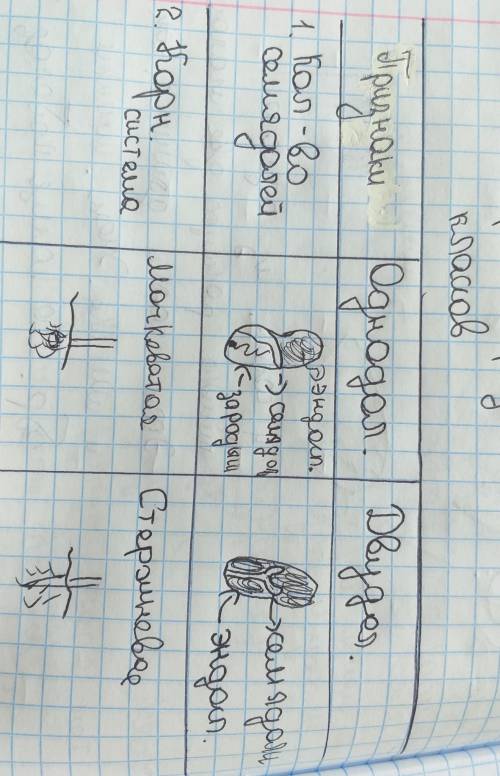 классов
Признаки
Однодол.
Двудол.
1. Кол-во
семядолей
эндосп.
семядол
зародыш
семядоли
эндосп.
2. Корн.
система
Мочковатая
Стержневая